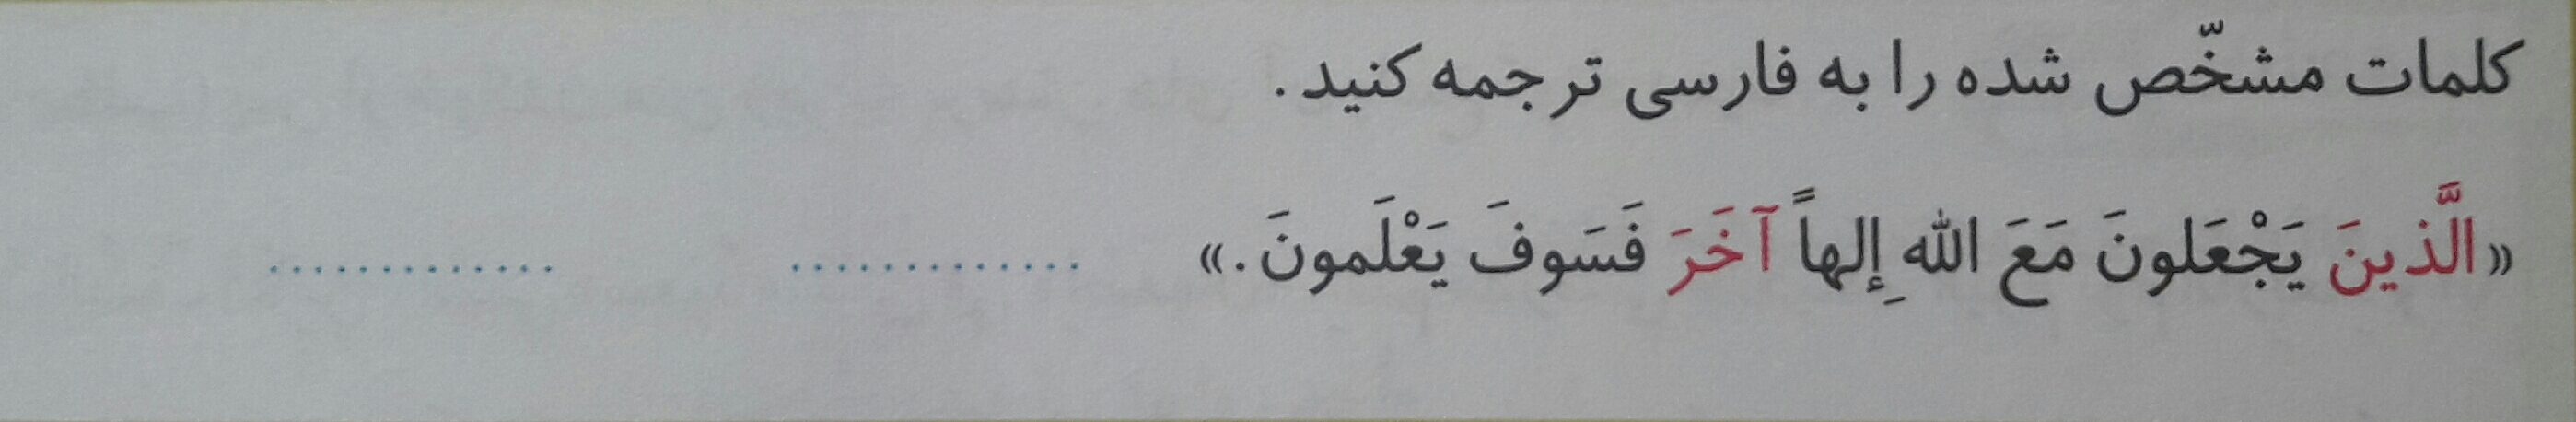 کلمات مشخّص شده را به فارسی ترجمه کنید.
«الَّذینَ یَجْعَلونَ مَعَ اللهِ إلهاً آخَرَ فَسَوفَ یَعْلَمونَ.» ............. .............